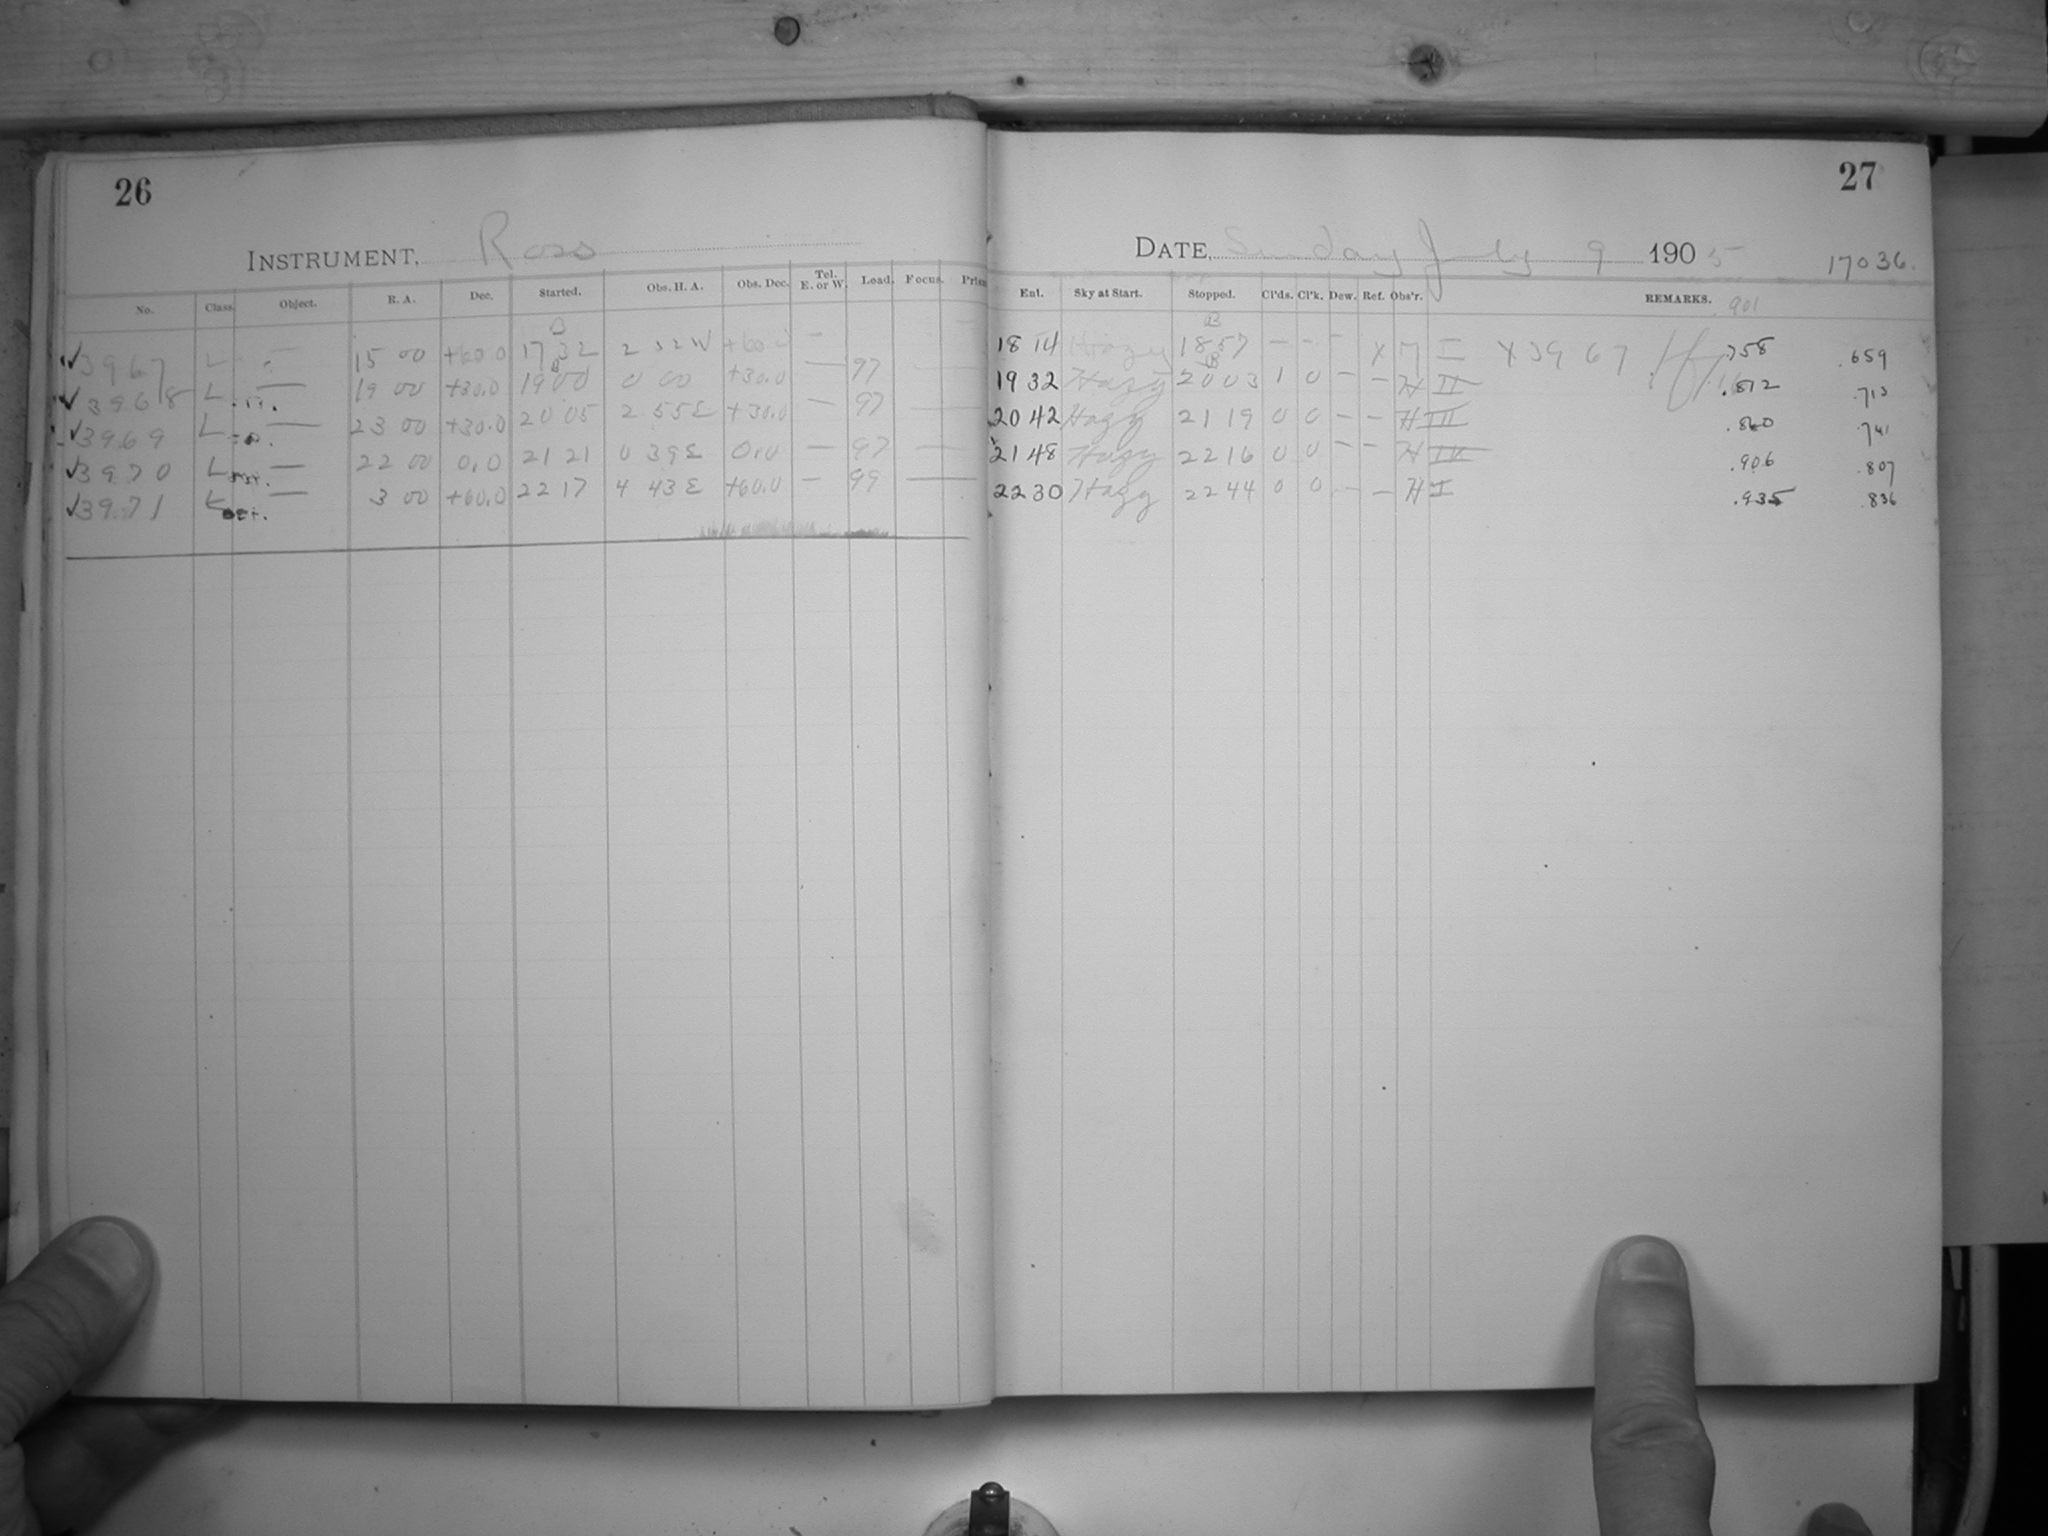 26
INSTRUMENT, Ross
No. Class. Object. R. A. Dec. Started. Obs. H. A. Obs. Dec. Tel. E. or W. Load. Focus.
✓3967 L — 15 00 +60.0 17 32 2 32 W +60.0 —
✓3968 L — 19 00 +30.0 19 00 0 00 +30.0 — 97
✓3969 L — 23 00 +30.0 20 05 2 55 E +30.0 — 97
✓3970 L — 22 00 0.0 21 21 0 39 E 0.0 — 97
✓3971 L — 3 00 +60.0 22 17 4 43 E +60.0 — 99
27
DATE, Sunday July 9 1905
17036.
Ent. Sky at Start. Stopped. Cl'ds. Cl'k. Dew. Ref. Obs'r. REMARKS. 901
18 14 Hazy 18 57 – – – X I X 3967 .758 .659
19 32 Hazy 20 03 1 0 – – H II .812 .713
20 42 Hazy 21 19 0 0 – – H III .860
21 48 Hazy 22 16 0 0 – – H IV .906 .807
22 30 Hazy 22 44 0 0 – – H I .935 .836